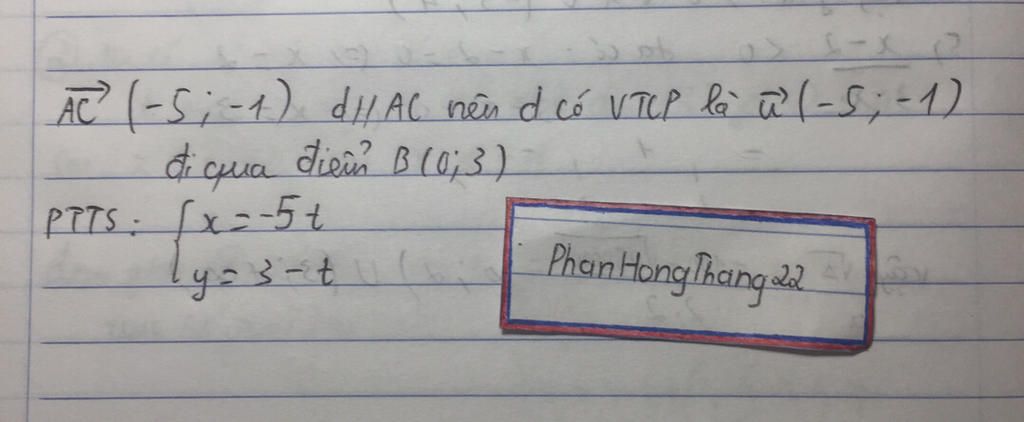 AC→ (-5; -1) d//AC nên d có VTCP là u→ (-5; -1)
đi qua điểm B(0;3)
PTTS: { x = -5t
y = 3 - t
PhanHongThang22